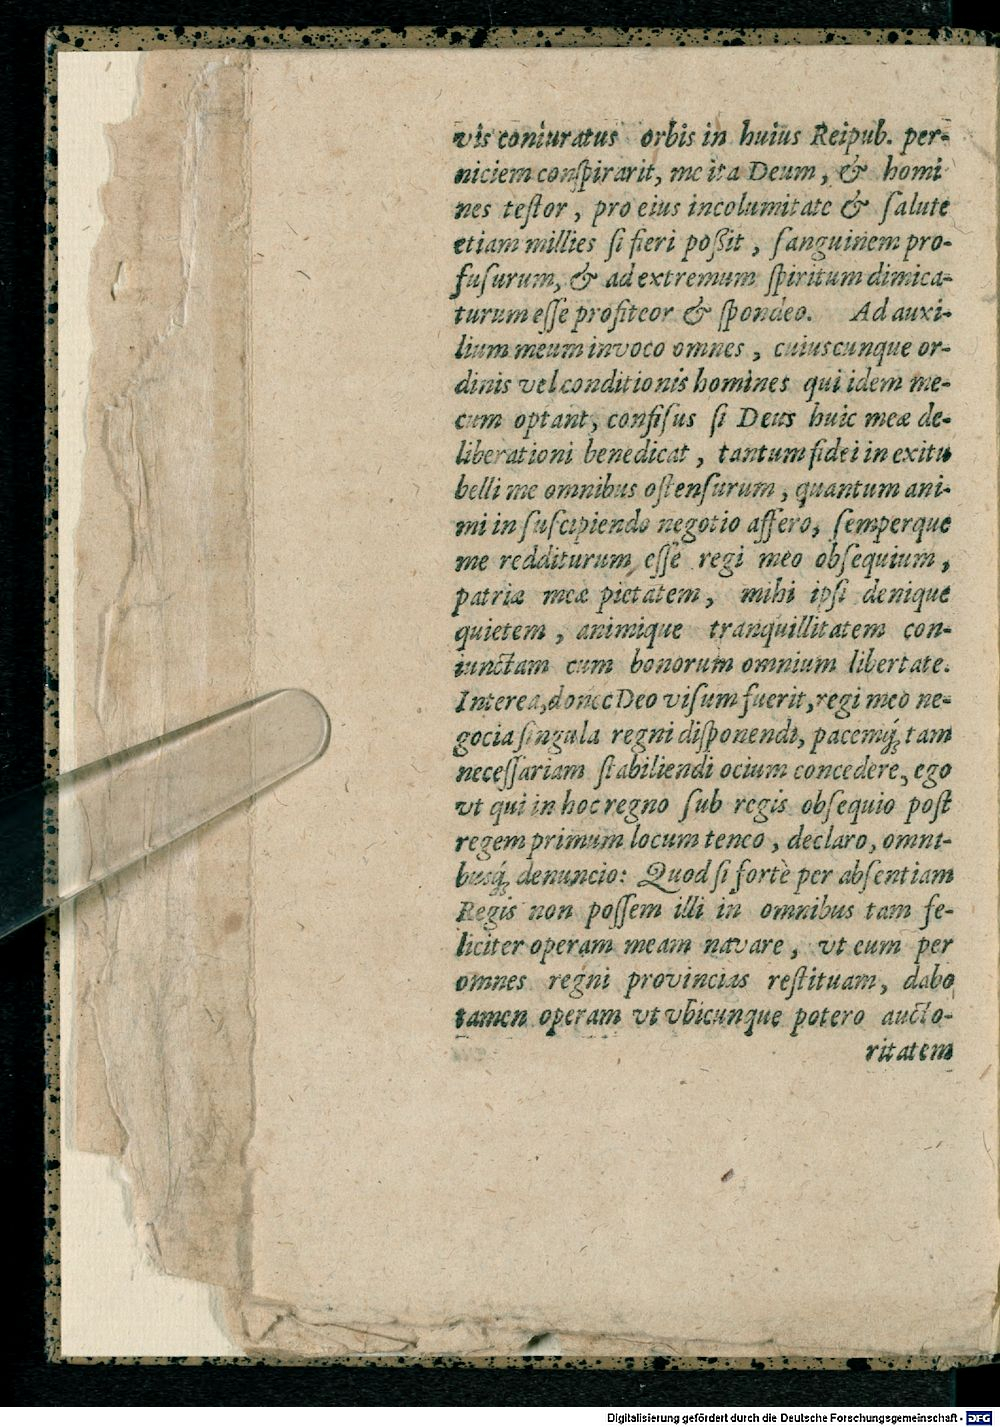 vis coniuratus orbis in huius Reipub. per-
niciem conſpirarit, me ita Deum, & homi
nes teſtor, pro eius incolumitate & ſalute
etiam millies ſi fieri poßit, ſanguinem pro-
fuſurum, & ad extremum ſpiritum dimica-
turum eſſe profiteor & ſpondeo. Ad auxi-
lium meum invoco omnes, cuiuscunque or-
dinis vel conditionis homines qui idem me-
cum optant, confiſus ſi Deus huic meæ de-
liberationi benedicat, tantum fidei in exitu
belli me omnibus oſtenſurum, quantum ani-
mi in ſuſcipiendo negotio affero, ſemperque
me redditurum eſſe regi meo obſequium,
patriæ meæ pietatem, mihi ipſi denique
quietem, animique tranquillitatem con-
iunctam cum bonorum omnium libertate.
Interea, donec Deo viſum fuerit, regi meo ne-
gocia ſingula regni diſponendi, pacemq́; tam
neceſſariam ſtabiliendi ocium concedere, ego
vt qui in hoc regno ſub regis obſequio poſt
regem primum locum teneo, declaro, omni-
busq́; denuncio: Quod ſi fortè per abſentiam
Regis non poſſem illi in omnibus tam fe-
liciter operam meam navare, vt eum per
omnes regni provincias reſtituam, dabo
tamen operam vt vbicunque potero aucto-
ritatem
Digitalisierung gefördert durch die Deutsche Forschungsgemeinschaft - DFG